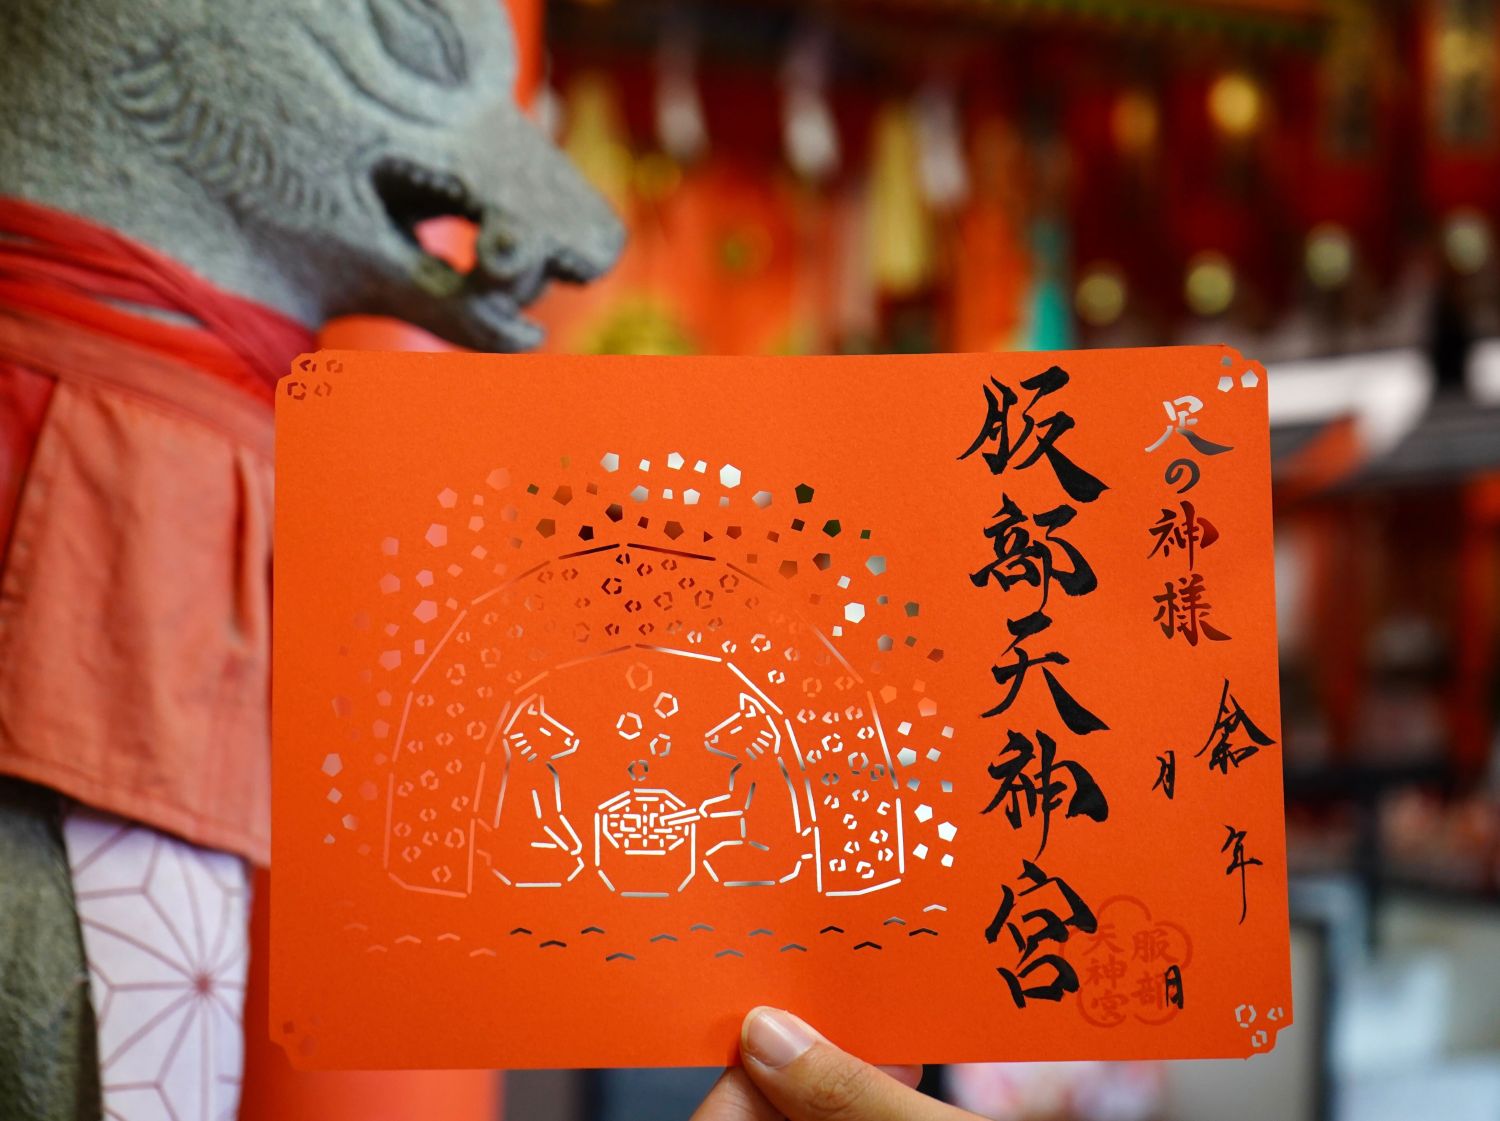 足の神様
服部天神宮
令和 年
月 日
服部
天神宮